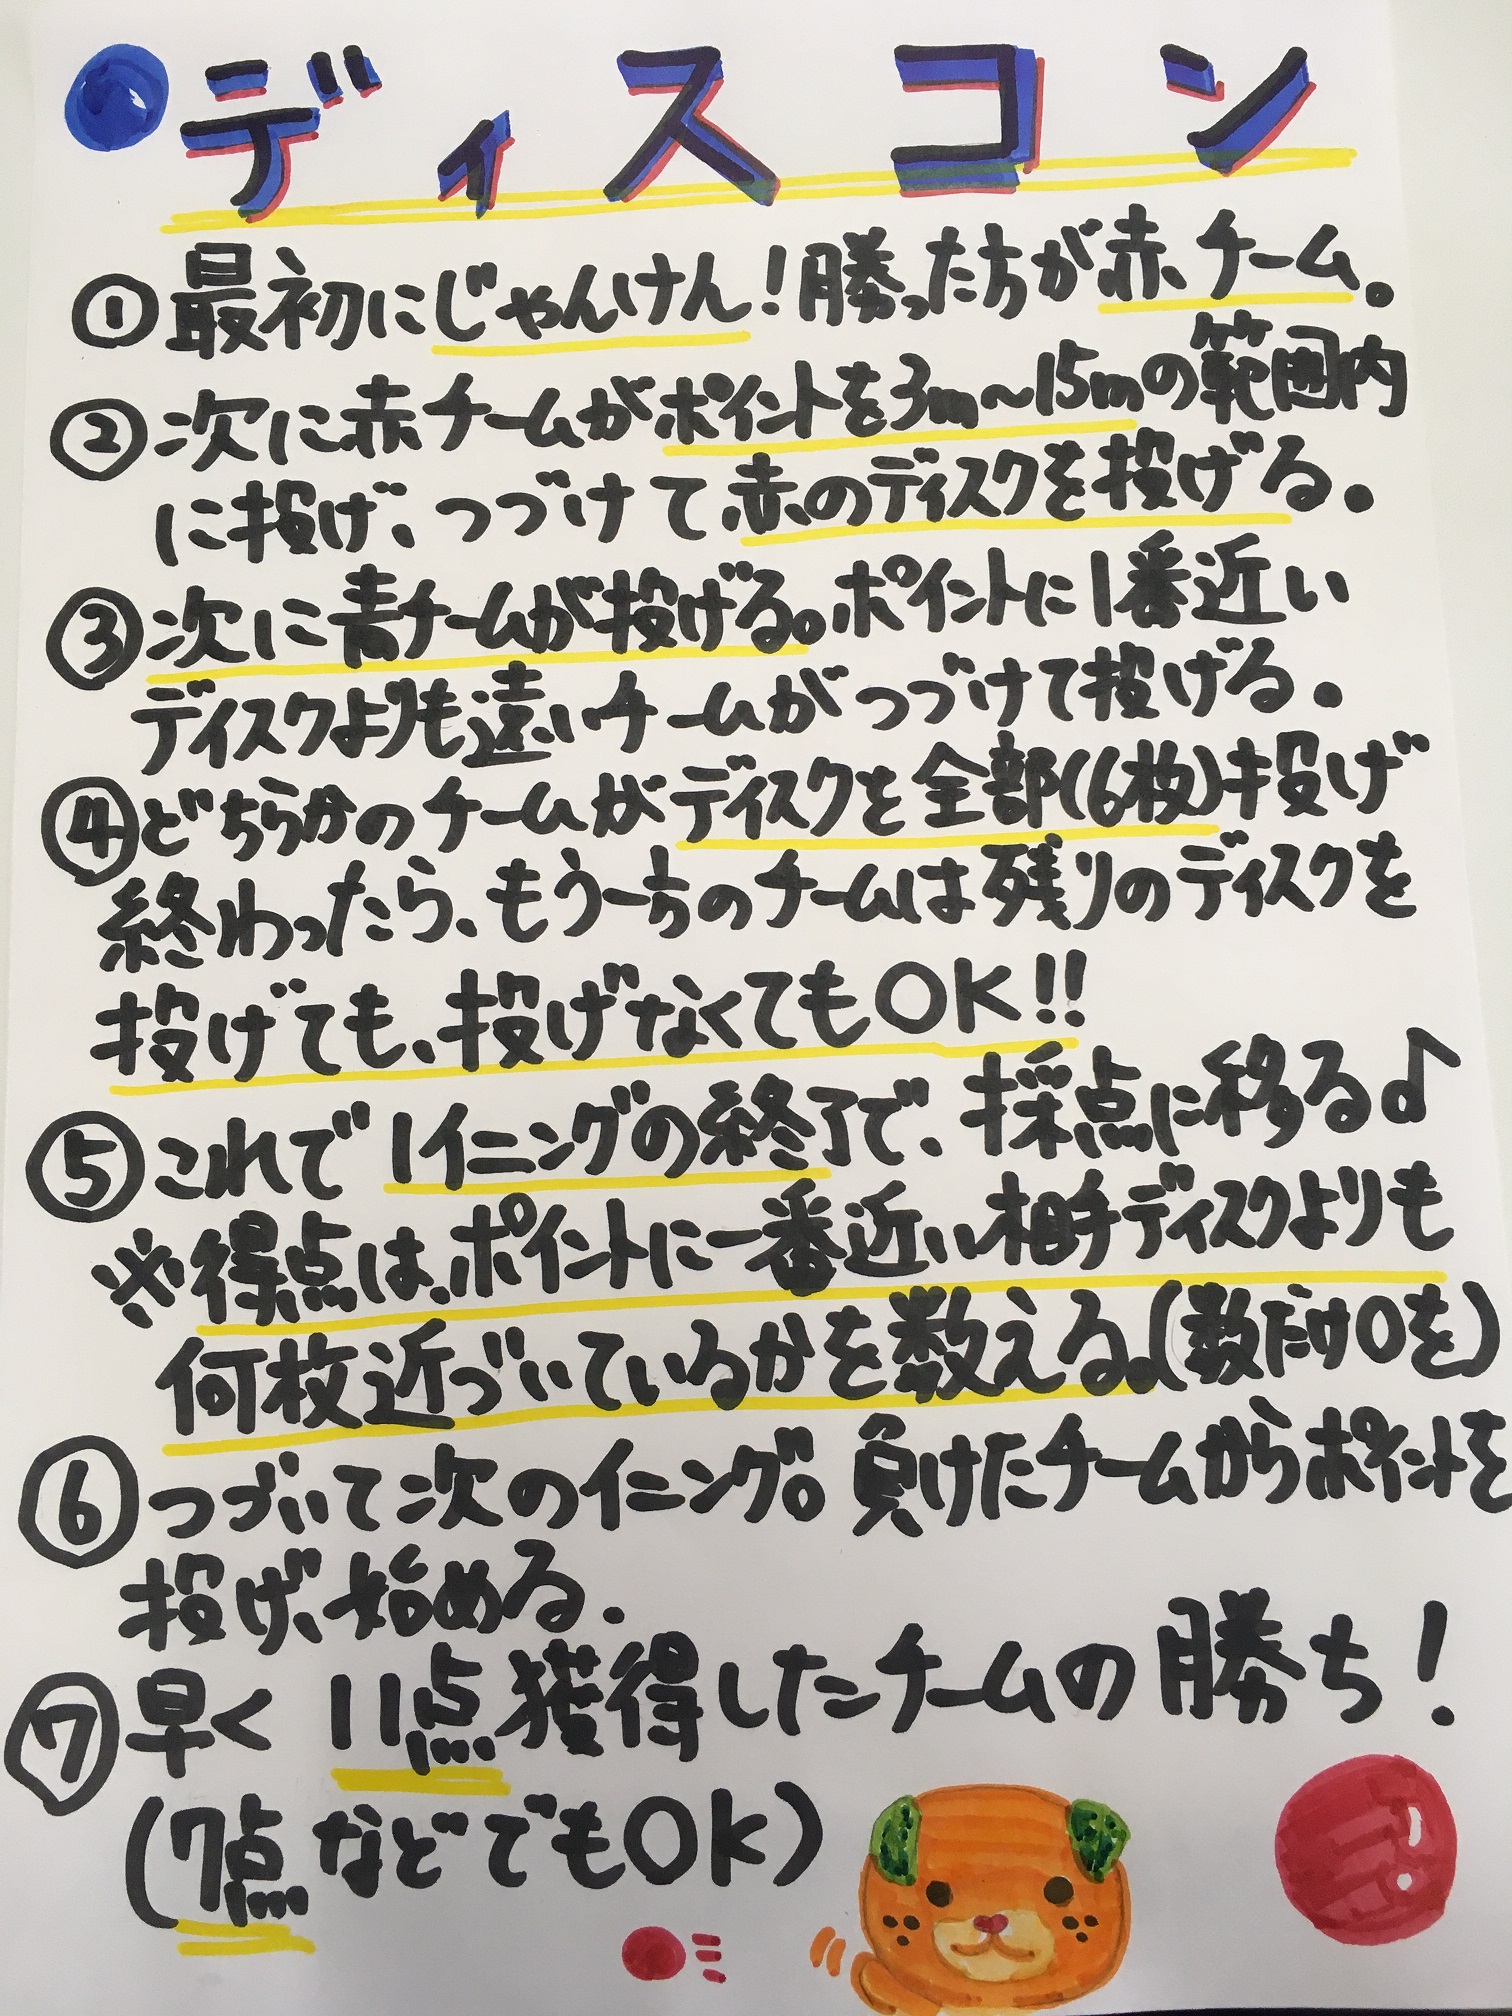 ディスコン
①最初にじゃんけん!勝った方が赤チーム。
②次に赤チームがポイントを3m~15mの範囲内
に投げ、つづけて赤のディスクを投げる。
③次に青チームが投げる。ポイントに1番近い
ディスクよりも遠いチームがつづけて投げる。
④どちらかのチームがディスクを全部(6枚)投げ
終わったら、もう一方のチームは残りのディスクを
投げても、投げなくてもOK!!
⑤これで1イニングの終了で、採点に移る♪
※得点は、ポイントに一番近い相手ディスクよりも
何枚近づいているかを数える。(数だけ○を)
⑥つづいて次のイニング。負けたチームからポイントを
投げ、始める。
⑦早く11点獲得したチームの勝ち!
(7点などでもOK)